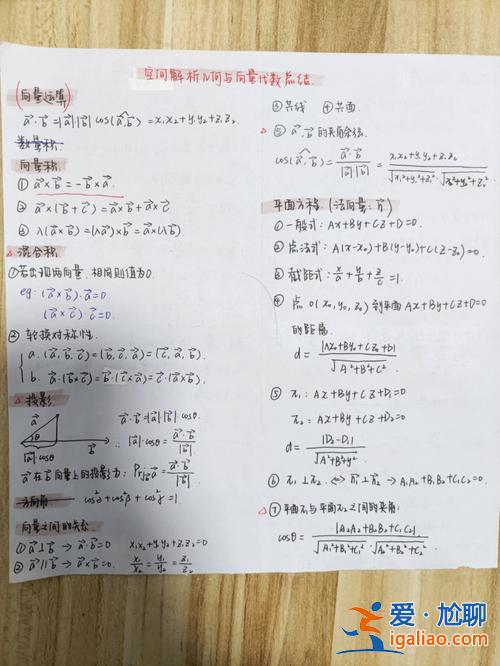 空间解析几何与向量代数总结.
(向量运算)
a⃗·b⃗=|a⃗|·|b⃗| cos(a⃗,b⃗)=x₁x₂+y₁y₂+z₁z₂
数量积.
向量积
① a⃗×b⃗=-b⃗×a⃗.
② a⃗×(b⃗+c⃗)=a⃗×b⃗+a⃗×c⃗
③ λ(a⃗×b⃗)=(λa⃗)×b⃗=a⃗×(λb⃗)
△ 混合积
①若出现两向量,相同则值为0.
eg:(a⃗×b⃗)·a⃗=0.
(a⃗×c⃗)·c⃗=0.
② 轮换对称性.
a. (a⃗,b⃗,c⃗)=(b⃗,c⃗,a⃗)=(c⃗,a⃗,b⃗).
b. a⃗·(b⃗×c⃗)=b⃗·(c⃗×a⃗)=c⃗·(a⃗×b⃗)
△ 投影
a⃗·b⃗=|a⃗|·|b⃗|·cosθ.
a⃗ θ b⃗
|a⃗|·cosθ
∴|a⃗|·cosθ=a⃗·b⃗/|b⃗|
a⃗ 在 b⃗ 向量上的投影为: Prj_b⃗ a⃗=a⃗·b⃗/|b⃗|
方向角. cos²α+cos²β+cos²γ=1.
向量之间的关系
① a⃗⊥b⃗ → a⃗·b⃗=0 x₁x₂+y₁y₂+z₁z₂=0
② a⃗∥b⃗ → a⃗×b⃗=0. x₁/x₂=y₁/y₂=z₁/z₂
③ 共线 ④ 共面.
△ ⑤ a⃗,b⃗ 的夹角余弦.
cos(a⃗,b⃗)=a⃗·b⃗/|a⃗||b⃗|=x₁x₂+y₁y₂+z₁z₂/√x₁²+y₁²+z₁²·√x₂²+y₂²+z₂²
平面方程.(法向量:n⃗)
① 一般式:Ax+By+Cz+D=0.
② 点法式:A(x-x₀)+B(y-y₀)+C(z-z₀)=0.
③ 截距式:x/a+y/b+z/c=1.
④ 点 0(x₀,y₀,z₀)到平面Ax+By+Cz+D=0
的距离.
d=|Ax₀+By₀+Cz₀+D|/√A²+B²+C²
⑤ π₁:Ax+By+Cz+D₁=0
π₂:Ax+By+Cz+D₂=0
d=|D₂-D₁|/√A²+B²+y²
⑥ π₁⊥π₂. ↔ n⃗₁⊥n⃗₂ → A₁A₂+B₁B₂+C₁C₂=0.
△ ⑦ 平面π₁与平面π₂之间的夹角.
cosθ=|A₁A₂+B₁B₂+C₁C₂|/√A₁²+B₁²+C₁²·√A₂²+B₂²+C₂²
爱·尬聊
igaliao.com